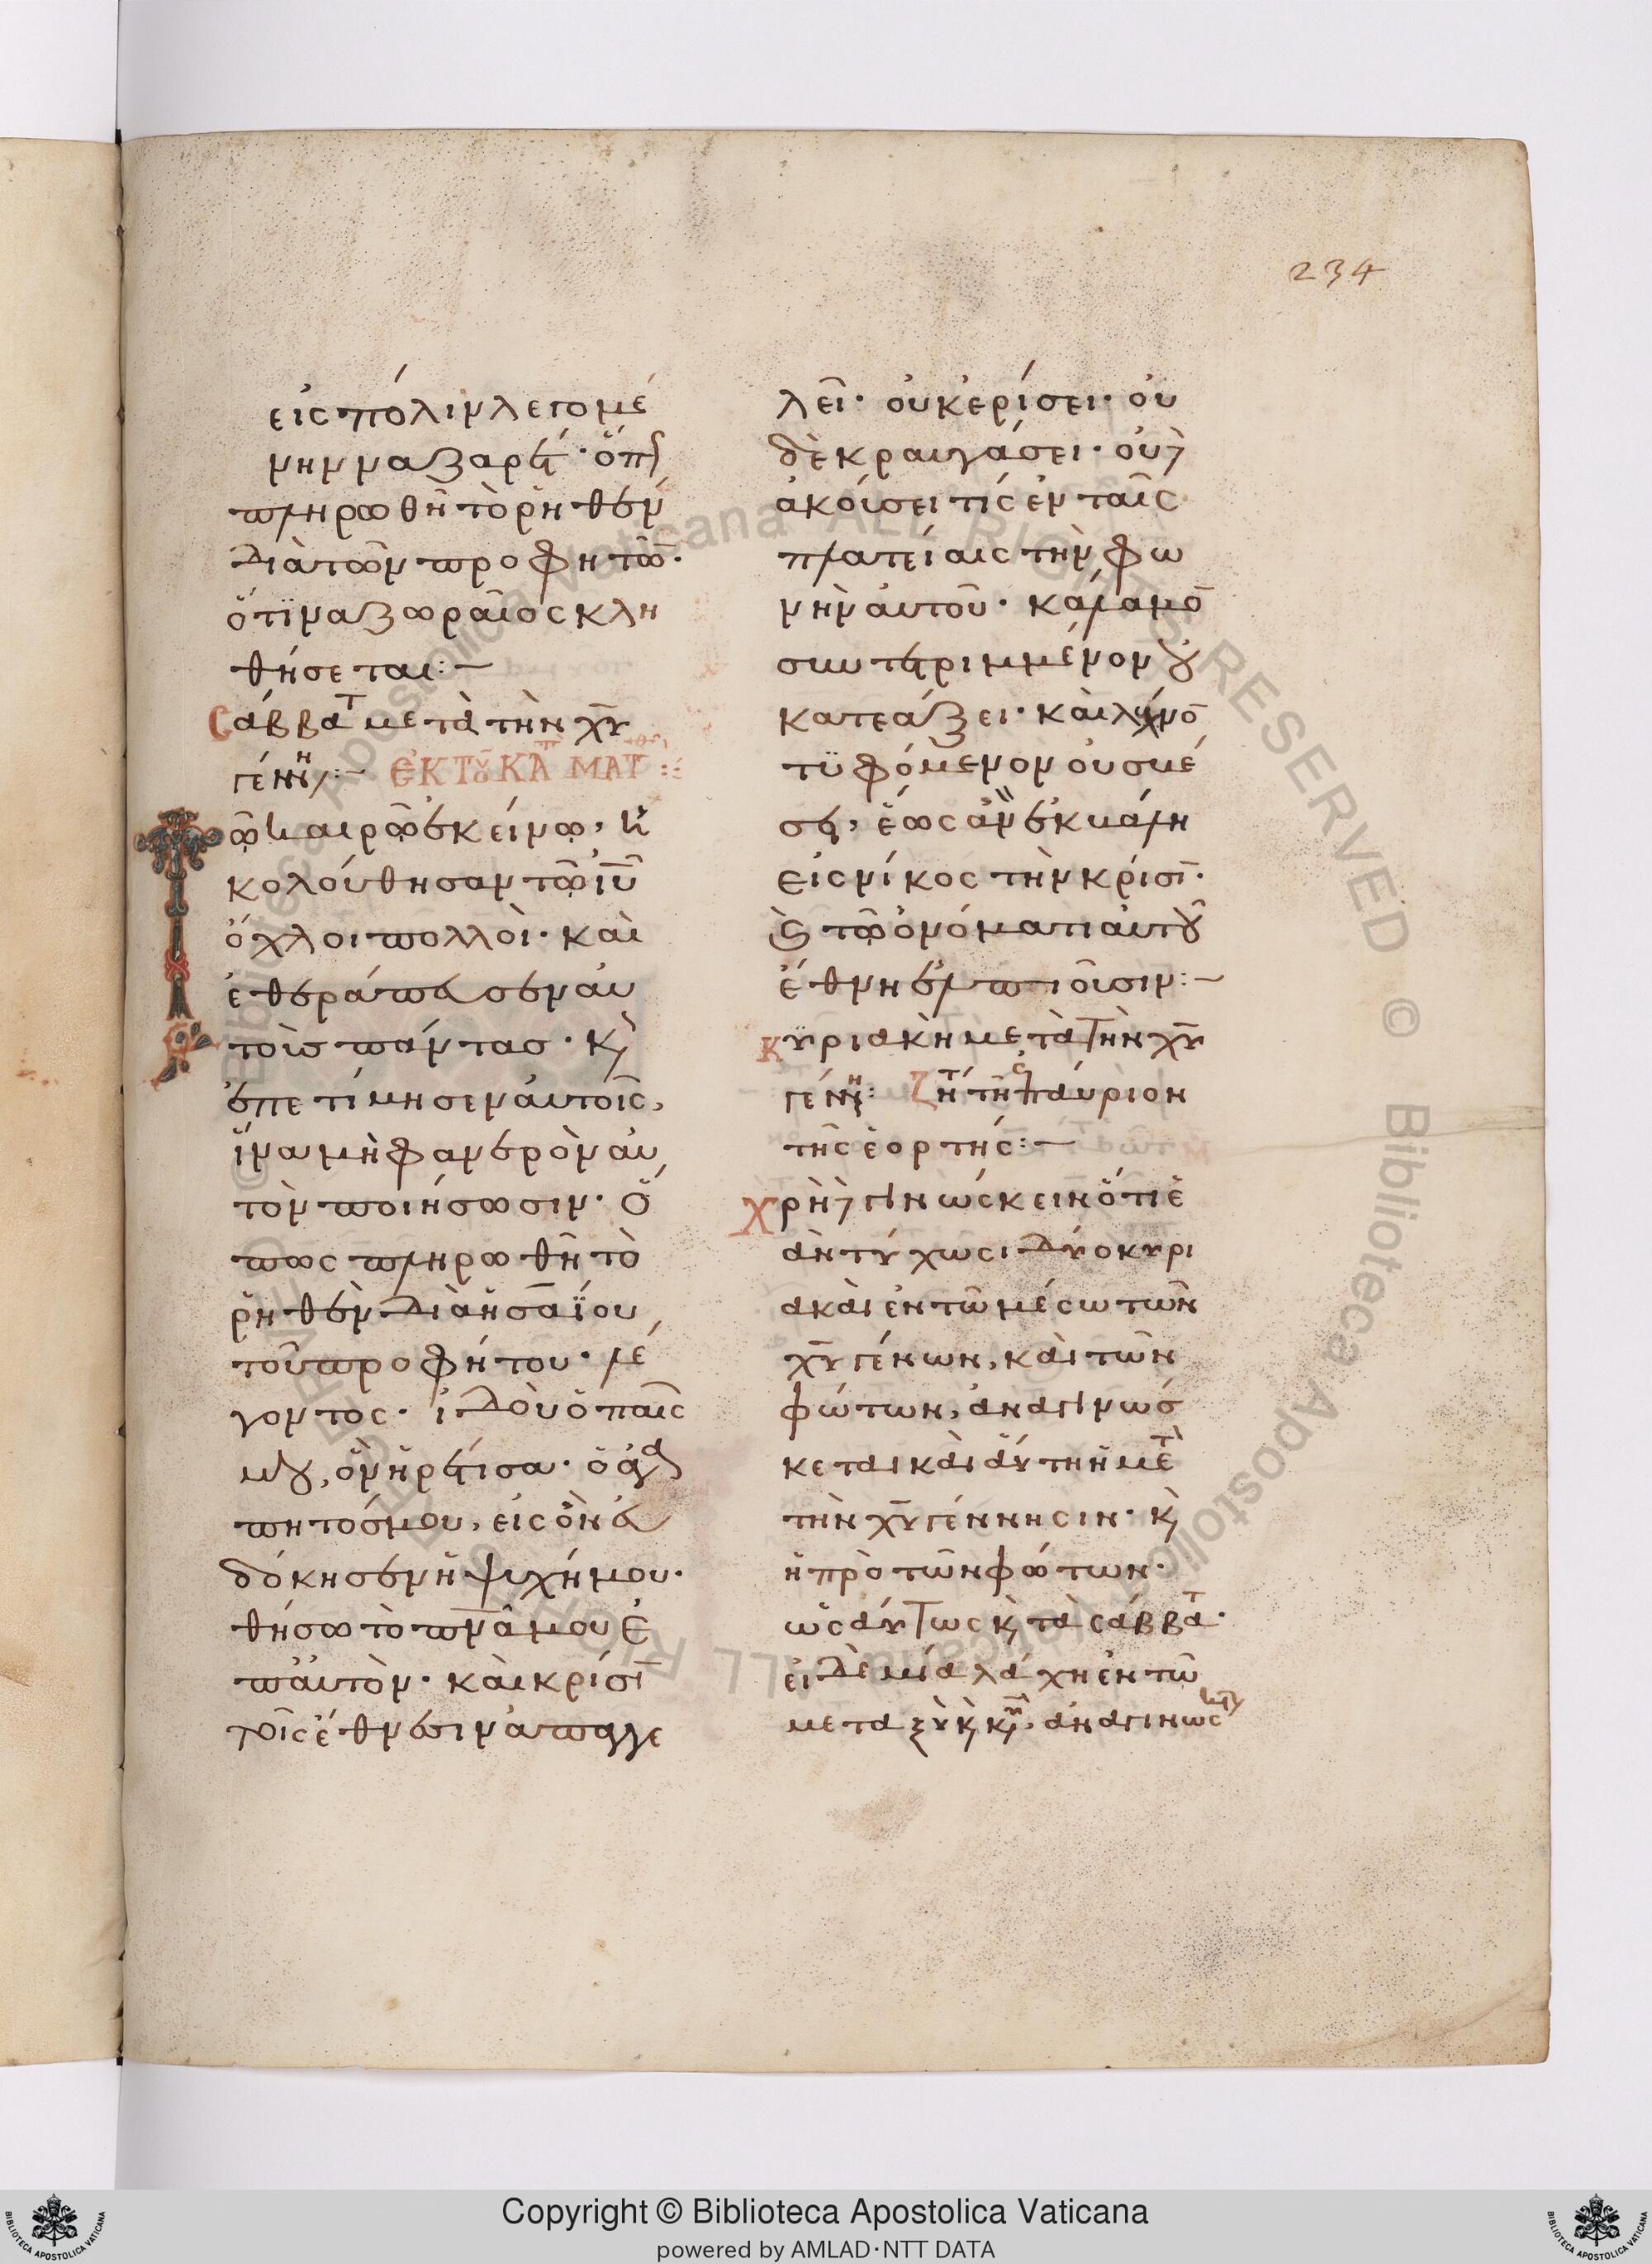 234
εἰς πόλιν λεγομέ
νην ναζαρέτ· ὅπως
πληρωθῆ τὸ ρηθὲν
διὰ τῶν προφητῶ·
ὅτϊ ναζωραῖος κλη
θήσεται:–
Σάββατ μετὰ τὴν χῦ
γένν:– ἘΚ ΤΟΥ ΚΑΤ ΜΑΤ
Τῶ καιρῶ ἐκείνω, ἠ
κολούθησαν τῶ ἰῦ
ὄχλοι πολλοὶ· καὶ
ἐθεράπευσεν αυ
τοὺσ πάντασ· κ
ἐπετίμησεν αὐτοῖς,
ἵνα μὴ φανερὸν αὐ
τὸν ποιήσωσιν· ὅ
πως πληρωθῆ τὸ
ρηθὲν διὰ ἠσαΐου
τοῦ προφήτου· λέ
γοντος· ἰδοὺ ὁ παῖς
μου, ὃν ἡρέτισα· ὁ ἀγα
πητόσ μου, εἰς ὃν εὐ
δόκησεν ἡ ψυχή μου·
θήσω τὸ πνᾶ μου ἐ
π αὐτὸν· καὶ κρίσῑ
τοῖς ἔθνεσιν ἀπαγγε
λεῖ· οὐκ ἐρίσει· οὐ
δὲ κραυγάσει· οὐδ
ἀκούσει τίς ἐν ταῖς
πλατείαις τὴν φω
νὴν αὐτοῦ· κάλαμο
συντετριμμένον ου
κατεάξει· καὶ λύχνο
τϋφόμενον οὐ σβέ
σει, ἕως ἂν ἐκβάλη
εἰς νίκος τὴν κρίσῑ·
καὶ τῶ ὀνόματι αὐτοῦ
ἔθνη ἐλπιοῦσιν:–
Κυριακὴ μετὰ τὴν χῦ
γένν: Ζήτ τῆ ἐπαύριον
τῆς ἑορτῆς:–
Χρὴ δ γινώσκειν ὅτι ἐ
ὰν τύχωσι δύο κυρι
ακαὶ ἐν τῶ μέσω τῶν
χῦ γένων, καὶ τῶν
φώτων, ἀναγινώσ
κεται καὶ αὕτη ἡ μετ
τὴν χῦ γέννησιν· κ
ἡ πρὸ τῶν φώτων·
ὡσαύτως κ τὰ σάββατ·
εἰ δὲ μία λάχη ἐν τῶ
μεταξὺ κ κυ, ἀναγινωσ